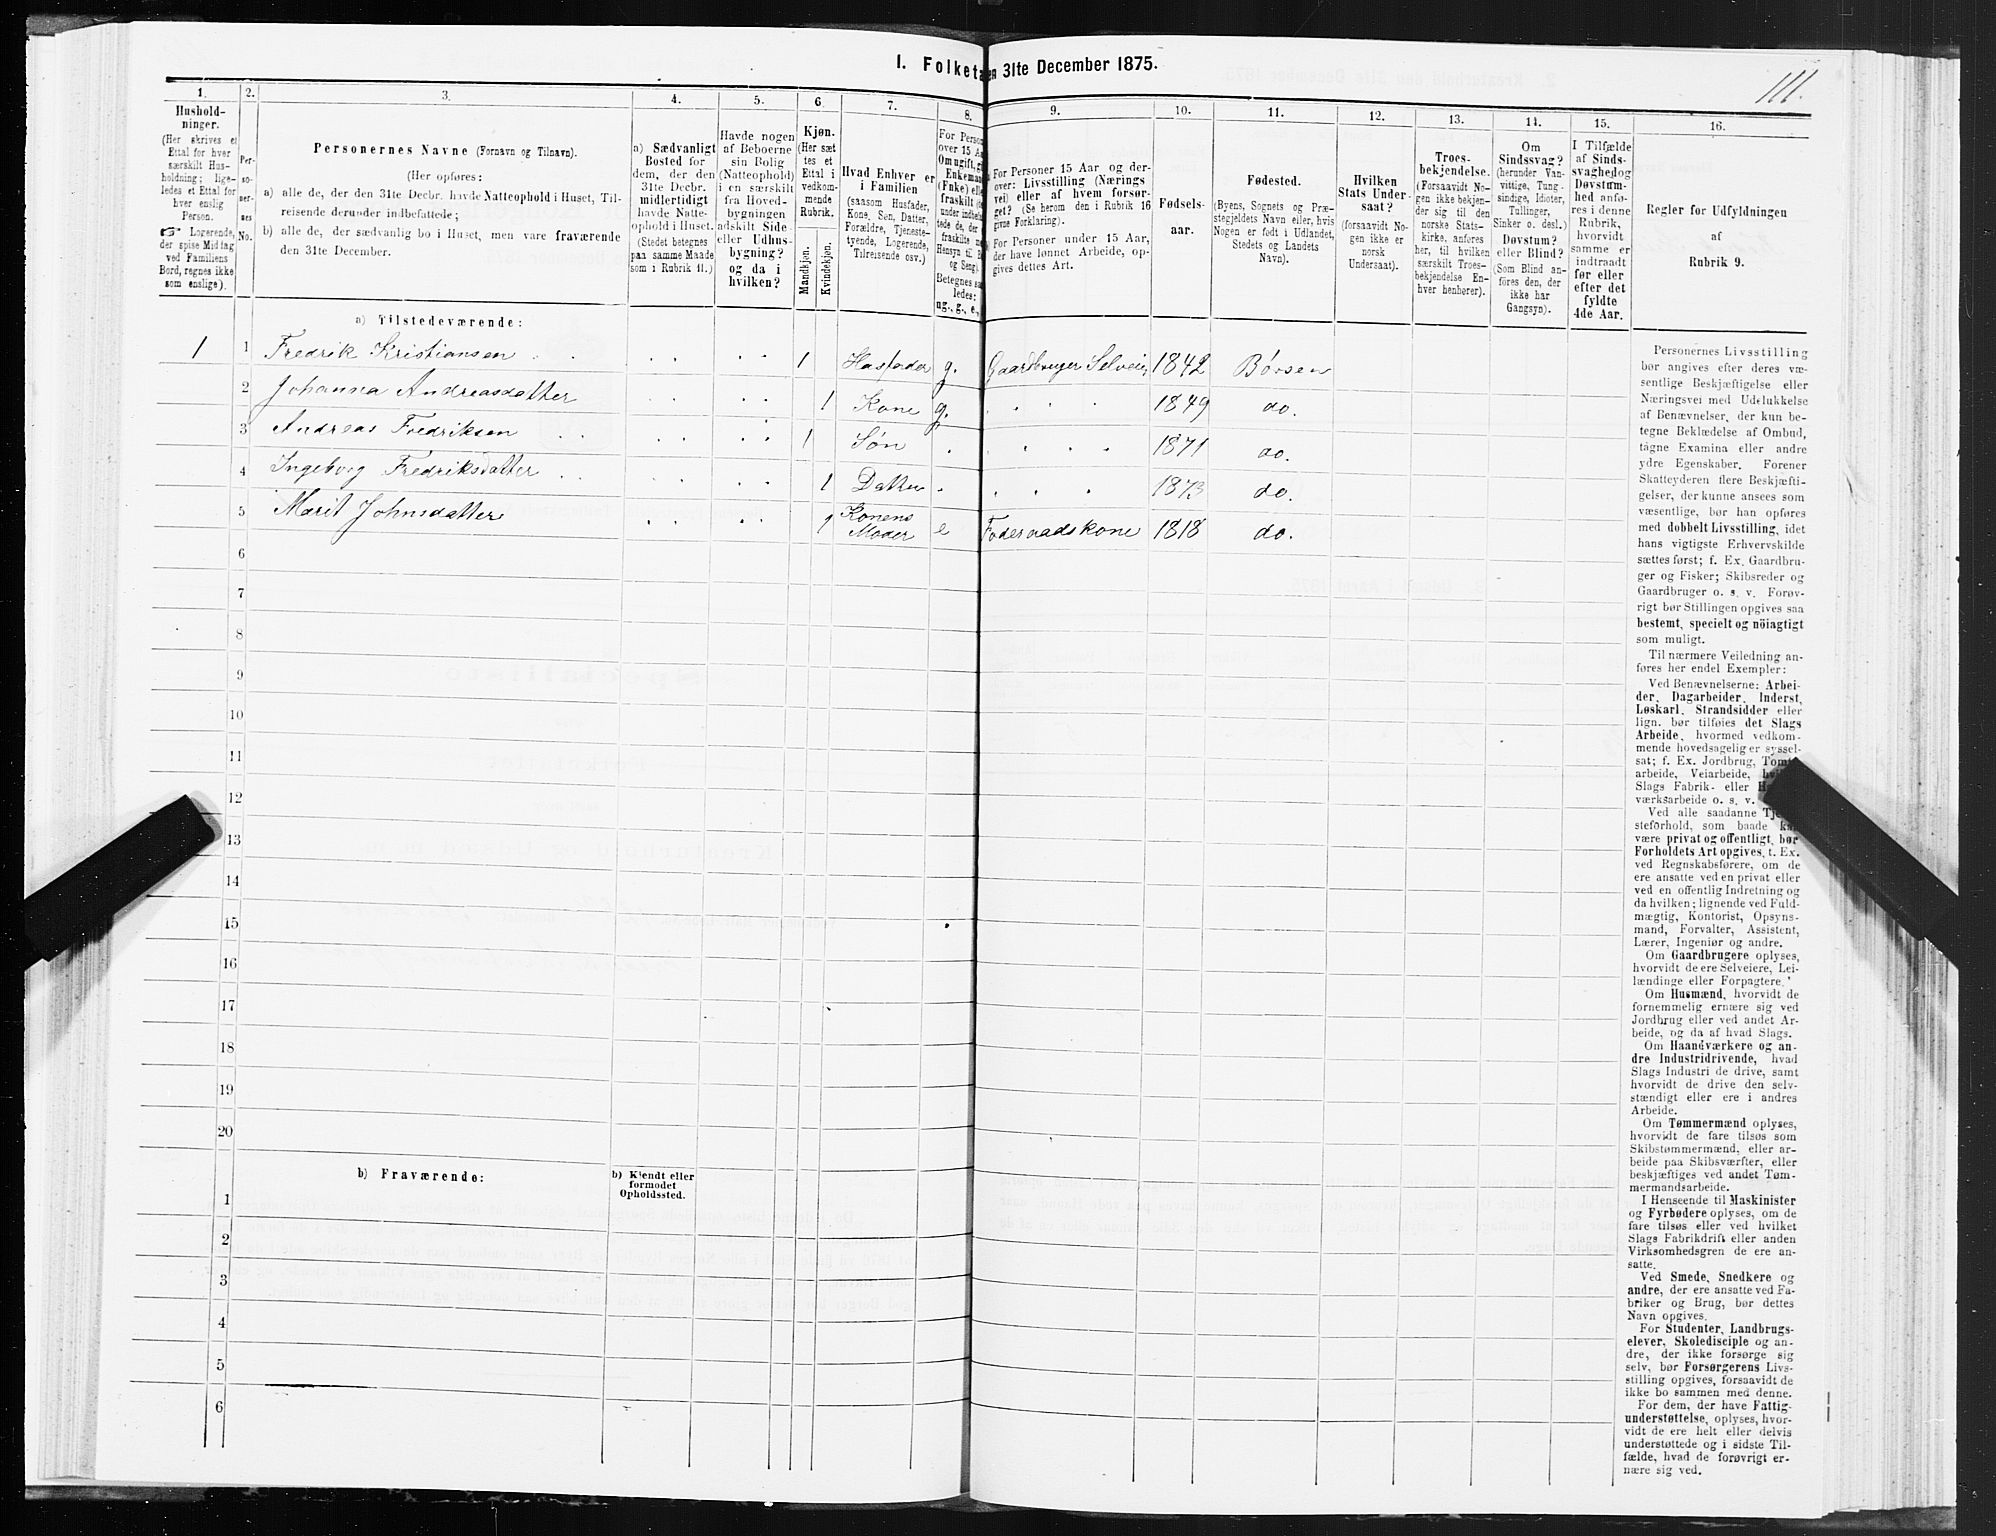 1. Folketa en 31te December 1875.
111.
1.
Hushold-
ninger.
(Her skrives et
Ettal for hver
særskilt Hus-
holdning; lige-
ledes et Ettal for
hver enslig
Person.
☞ Logerende,
der spise Middag
ved Familiens
Bord, regnes ikke
som enslige).
2.
Per-
so-
ner-
nes
No.
3.
Personernes Navne (Fornavn og Tilnavn).
(Her opføres:
a) alle de, der den 31te Decbr. havde Natteophold i Huset, Til-
reisende derunder indbefattede;
b) alle de, der sædvanlig bo i Huset, men vare fraværende
den 31te December.
4.
a) Sædvanligt
Bosted for
dem, der den
31te Decbr.
midlertidigt
havde Natte-
ophold i Huset.
(Stedet betegnes
paa samme Maade
som i Rubrik 11.)
5.
Havde nogen
af Beboerne
sin Bolig
(Natteophold)
i en særskilt
fra Hoved-
bygningen
adskilt Side-
eller Udhus-
bygning?
og da i
hvilken?
6.
Kjøn.
(Her sæt
tes et
Ettal i
vedkom-
mende
Rubrik.
Mandkjøn.
Kvindekjøn.
7.
Hvad Enhver er
i Familien
(saasom Husfader,
Kone, Søn, Datter,
Forældre, Tjeneste-
tyende, Logerende,
Tilreisende osv.)
8.
For Person
over 15 Aa
Om ugift, gi
Enkeman
(Fnke) ell
fraskilt
under indbe
tede de, der
fraskilte
Hensyn til B
og Seng).
Betegnes sa
ledes:
ug., g., e.,
9.
For Personer 15 Aar og der-
over: Livsstilling (Nærings
vei) eller af hvem forsør-
get? (Se herom den i Rubrik 16
givne Forklaring).
For Personer under 15 Aar,
der have lønnet Arbeide, op-
gives dettes Art.
10.
Fødsels-
aar.
11.
Fødested.
(Byens, Sognets og Præ-
stegjeldets Navn eller, hvis
Nogen er født i Udlandet,
Stedets og Landets
Navn).
12.
Hvilken
Stats Under-
saat?
(forsaavidt No-
gen ikke er
norsk
Undersaat).
13.
Troes-
bekjendelse.
(Forsaavidt No-
gen ikke bekjen-
der sig til den
norske Stats-
kirke, anføres
her, til hvilken
særskilt Troes-
bekjendelse En-
hver henhører).
14.
Om
Sindssvag?
(herunder Van-
vittige, Tung-
sindige, Idioter,
Tullinger,
Sinker o. desl.)
Døvstum?
eller Blind?
(Som Blind an-
føres den, der
ikke har
Gangsyn).
15.
I Tilfælde
af Sinds-
svaghed og
Døvstum-
hed anfø-
res i denne
Rubrik,
hvorvidt
samme er
indtraadt
før eller
efter det
fyldte
4de Aar.
16.
Regler for Udfyldningen
af
Rubrik 9.
a) Tilstedeværende:
1 1 Fredrik Kristiansen 1 Husfader g. Gaardbruger Selveier 1842 Børsen
2 Johanna Andreasdatter 1 Kone g. 1849 do.
3 Andreas Fredriksen 1 Søn 1871 do.
4 Ingeborg Fredriksdatter 1 Datter 1873 do.
5 Marit Johnsdatter 1 Konens Moder e Føderaadskone 1818 do.
6
7
8
9
10
11
12
13
14
15
16
17
18
19
20
b) Fraværende:
b) Kjendt eller
formodet
Opholdssted.
1
2
3
4
5
6
Personernes Livsstilling
bør angives efter deres væ-
sentlige Beskjæftigelse eller
Næringsvei med Udelukkelse
af Benævnelser, der kun be-
tegne Beklædelse af Ombud,
tagne Examina eller andre
ydre Egenskaber. Forener
Skatteyderen flere Beskjæfti-
gelser, der kunne ansees som
væsentlige, bør han opføres
med dobbelt Livsstilling, idet
hans vigtigste Erhvervskilde
sættes først; f. Ex. Gaardbru-
ger og Fisker; Skibsreder og
Gaardbruger o. s. v. Forøv-
rigt bør Stillingen opgives saa
bestemt, specielt og nöiagtigt
som muligt.
Til nærmere Veiledning an-
føres her endel Exempler:
Ved Benævnelserne: Arbei-
der, Dagarbeider, Inderst,
Løskarl, Strandsidder eller
lign. bør tilføies det Slags
Arbeide, hvormed vedkom-
mende hovedsagelig er syssel-
sat; f. Ex. Jordbrug, Tømt
arbeide, Veiarbeide, hvi
Slags Fabrik- eller H
værksarbeide o. s. v.
Ved alle saadanne Tje
steforhold, som baade ka
være privat og offentligt, bør
Forholdets Art opgives, t. Ex.
ved Regnskabsførere, om de
ere ansatte ved en privat eller
ved en offentlig Indretning og
da hvilken; lignende ved Fuld-
mægtig, Kontorist, Opsyns-
mand, Forvalter, Assistent,
Lærer, Ingeniør og andre.
Om Gaardbrugere oplyses,
hvorvidt de ere Selveiere, Lei-
lændinge eller Forpagtere.
Om Husmænd, hvorvidt de
fornemmelig ernære sig ved
Jordbrug eller ved andet Ar-
beide, og da af hvad Slags.
Om Haandværkere og an-
dre Industridrivende, hvad
Slags Industri de drive, samt
hvorvidt de drive den selv-
stændigt eller ere i andres
Arbeide.
Om Tømmermænd oplyses,
hvorvidt de fare tilsøs som
Skibstømmermænd, eller ar-
beide paa Skibsværfter, eller
beskjæftiges ved andet Tøm-
mermandsarbeide.
I Henseende til Maskinister
og Fyrbødere oplyses, om de
fare tilsøs eller ved hvilket
Slags Fabrikdrift eller anden
Virksomhedsgren de ere an-
satte.
Ved Smede, Snedkere og
andre, der ere ansatte ved Fa-
briker og Brug, bør dettes
Navn opgives.
For Studenter, Landbrugs-
elever, Skoledisciple og an-
dre, der ikke forsørge sig
selv, bør Forsørgerens Livs-
stilling opgives, forsaavidt de
ikke bo sammen med denne.
For dem, der have Fattig-
understøttelse, oplyses, hvor-
vidt de ere helt eller delvis
understøttede og i sidste Til-
fælde, hvad de forøvrigt er-
nære sig ved.